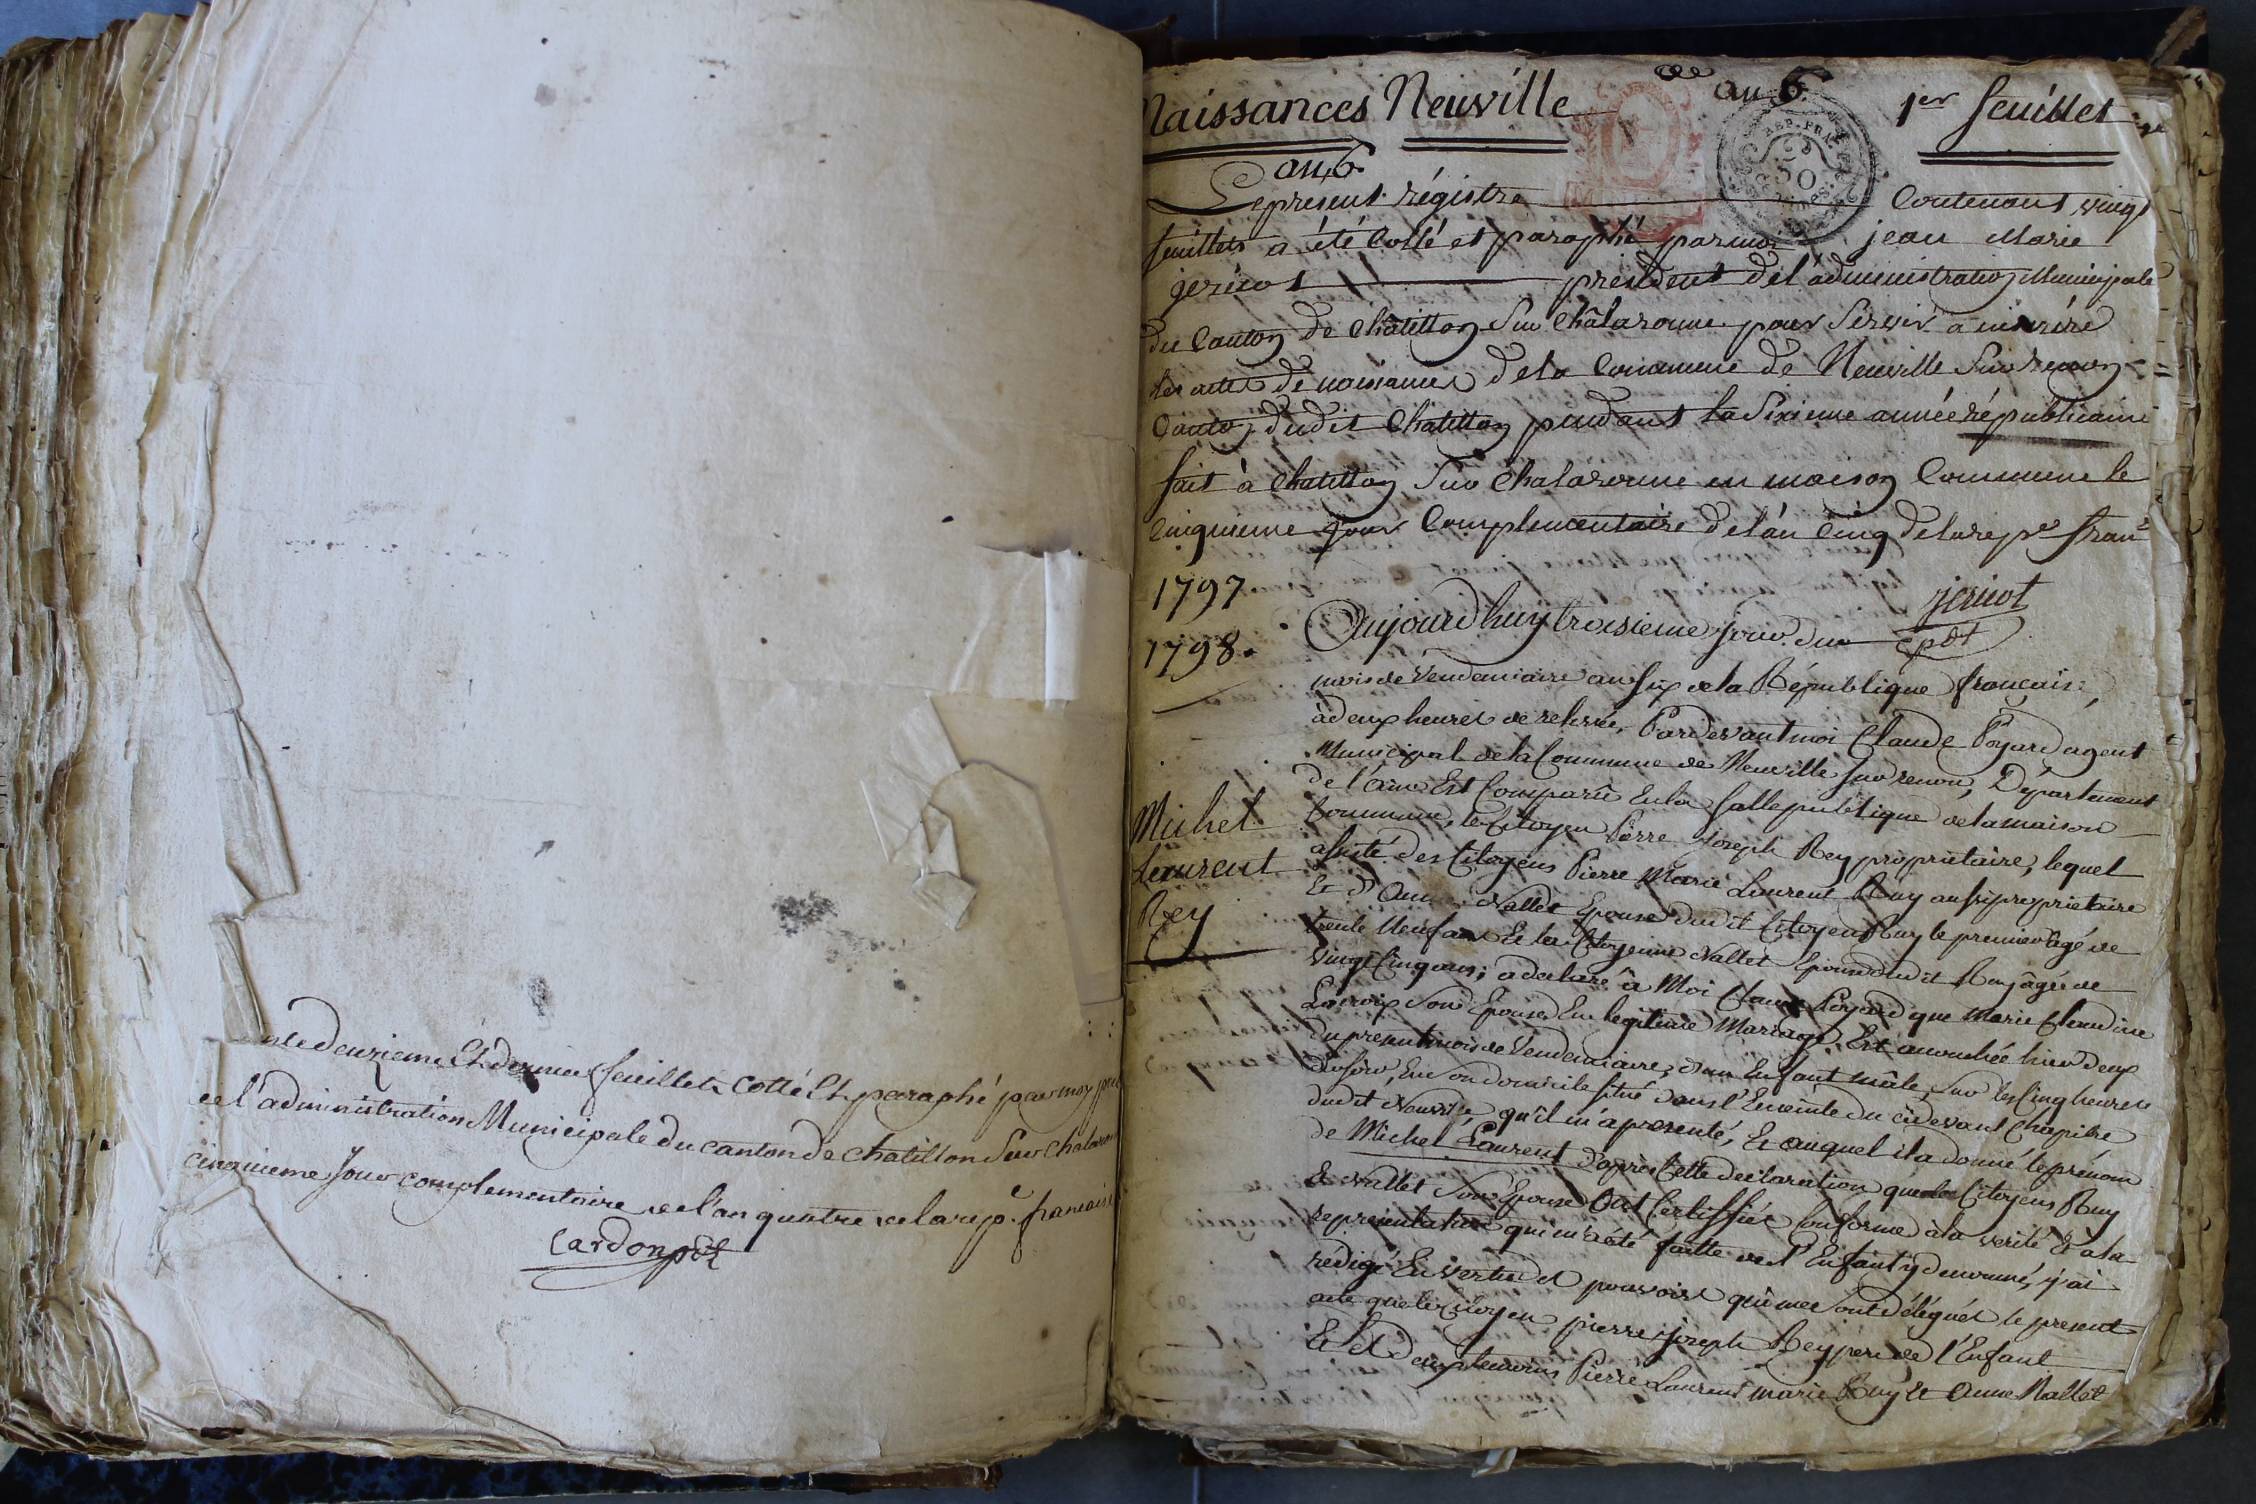 deuzieme Et dernier feuillet cotté Et paraphé par moy
de l'administration Municipale du canton de chatillon Sur chalar
cinquieme Jour complementaire de l'an quatre de la rep.e francaise
Cardon pdt
Naissances Neuville
an 6
1er feuillet
an 6
REP. FRA
50
Le present régistre contenant vingt
feuillets a été Cotté et paraphé par moi jean Marie
jericot président de l'administration Municipale
du Canton de Châtillon Sur Châlaronne pour Servir a
les actes de naissances de la Commune de Neuville Sur renon
Canton dudit Chatillon pendant la Sixieme année républicaine
fait à Chatillon Sur Chalaronne en maison Commune le
Cinquieme jour Complementaire de l'an Cinq de la rep.e fran
1797
1798.
jericot
pdt
Aujourd'huy troisieme jour du
mois de Vendemiaire an six de la République français
à deux heures de relevée, Pardevant moi Claude Poyard agent
Municipal de la Commune de Neuville sur renon, Département
de l'ain Est Comparu En la Salle publique de la maison
Commune, le Citoyen Pierre Joseph Rey propriétaire, lequel
assisté des Citoyens Pierre Marie Laurent Ruy aussi propriétaire
Et d'Anne Nallet Epouse dudit Citoyen Ruy le premier âgé de
trente Neuf ans Et la Citoyenne Nallet Epouse dudit Ruy âgée de
vingt Cinq ans; a declaré à Moi Claude Poyard que Marie Claudine
Lacroix Son Epouse En legitime Mariage, Est accouchée hier deux
du present mois de Vendemiaire, d'un Enfant mâle, Sur les Cinq heures
du soir, En Son domicile situé dans l'Enceinte du cidevant Chapitre
dudit Neuville, qu'il m'a presenté, Et auquel il a donné le prénom
de Michel Laurent d'après Cette declaration que les Citoyens Ruy
& Nallet Son Epouse Ont Certiffiée Conforme à la verité & a la
representation qui m'a été faitte de l'Enfant y denommé, j'ai
rédigé En vertu des pouvoirs qui me Sont délégués le present
acte que le Citoyen pierre joseph Rey pere de l'Enfant
Et les Deux temoins Pierre Laurent marie Ruy & Anne Nallet
Michel
Laurent
Rey